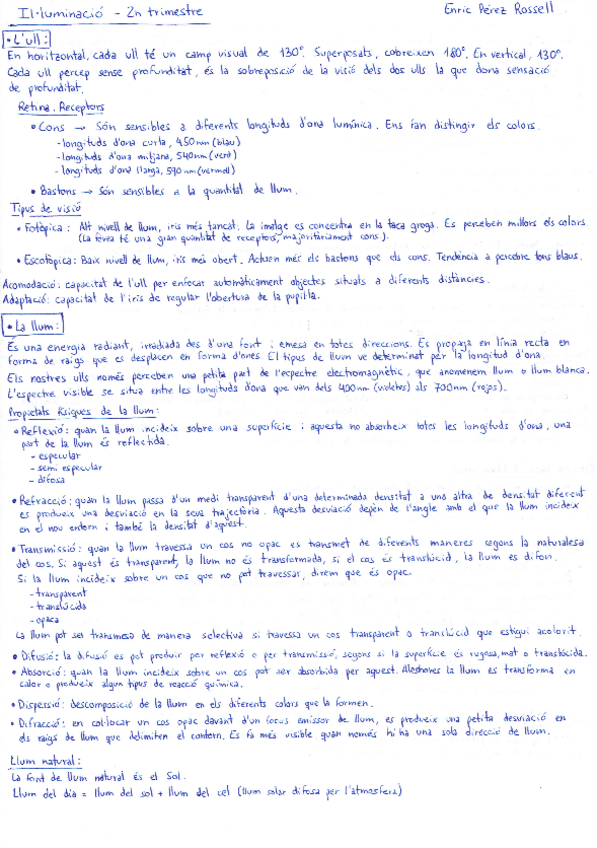 Il·luminació - 2n trimestre
Enric Pérez Rossell
• L'ull:
En horitzontal, cada ull té un camp visual de 130º. Superposats, cobreixen 180º. En vertical, 130º.
Cada ull percep sense profunditat, és la sobreposició de la visió dels dos ulls la que dona sensació
de profunditat.
Retina. Receptors
• Cons → Són sensibles a diferents longituds d'ona lumínica. Ens fan distingir els colors.
- longituds d'ona curta, 450nm (blau)
- longituds d'ona mitjana, 540nm (verd)
- longituds d'ona llarga, 590nm (vermell)
• Bastons → Són sensibles a la quantitat de llum.
Tipus de visió
• Fotòpica: Alt nivell de llum, iris més tancat. La imatge es concentra en la taca groga. Es perceben millors els colors
(La fòvea té una gran quantitat de receptors, majoritàriament cons).
• Escotòpica: Baix nivell de llum, iris més obert. Actuen més els bastons que els cons. Tendència a percebre tons blaus.
Acomodació: capacitat de l'ull per enfocar automàticament objectes situats a diferents distàncies.
Adaptació: capacitat de l'iris de regular l'obertura de la pupil·la.
• La llum:
És una energia radiant, irradiada des d'una font i emesa en totes direccions. Es propaga en línia recta en
forma de raigs que es desplacen en forma d'ones. El tipus de llum ve determinat per la longitud d'ona.
Els nostres ulls només perceben una petita part de l'espectre electromagnètic, que anomenem llum o llum blanca.
L'espectre visible se situa entre les longituds d'ona que van dels 400nm (violetes) als 700nm (rojos).
Propietats físiques de la llum:
• Reflexió: quan la llum incideix sobre una superfície i aquesta no absorbeix totes les longituds d'ona, una
part de la llum és reflectida.
- especular
- semi especular
- difosa
• Refracció: quan la llum passa d'un medi transparent d'una determinada densitat a uno altra de densitat diferent
es produeix una desviació en la seva trajectòria. Aquesta desviació depèn de l'angle amb el que la llum incideix
en el nou entorn i també la densitat d'aquest.
• Transmissió: quan la llum travessa un cos no opac es transmet de diferents maneres segons la naturalesa
del cos. Si aquest és transparent, la llum no és transformada, si el cos és translúcid, la llum es difon.
Si la llum incideix sobre un cos que no pot travessar, direm que és opac.
- transparent
- translúcida
- opaca
La llum pot ser transmesa de manera selectiva si travessa un cos transparent o translúcid que estigui acolorit.
• Difusió: la difusió es pot produir per reflexió o per transmissió, segons si la superfície és rugosa, mat o translúcida.
• Absorció: quan la llum incideix sobre un cos pot ser absorbida per aquest. Aleshores la llum es transforma en
calor o produeix algun tipus de reacció química.
• Dispersió: descomposició de la llum en els diferents colors que la formen.
• Difracció: en col·locar un cos opac davant d'un focus emissor de llum, es produeix una petita desviació en
els raigs de llum que delimiten el contorn. Es fa més visible quan només hi ha una sola direcció de llum.
Llum natural:
La font de llum natural és el Sol.
Llum del dia = llum del sol + llum del cel (llum solar difosa per l'atmosfera)